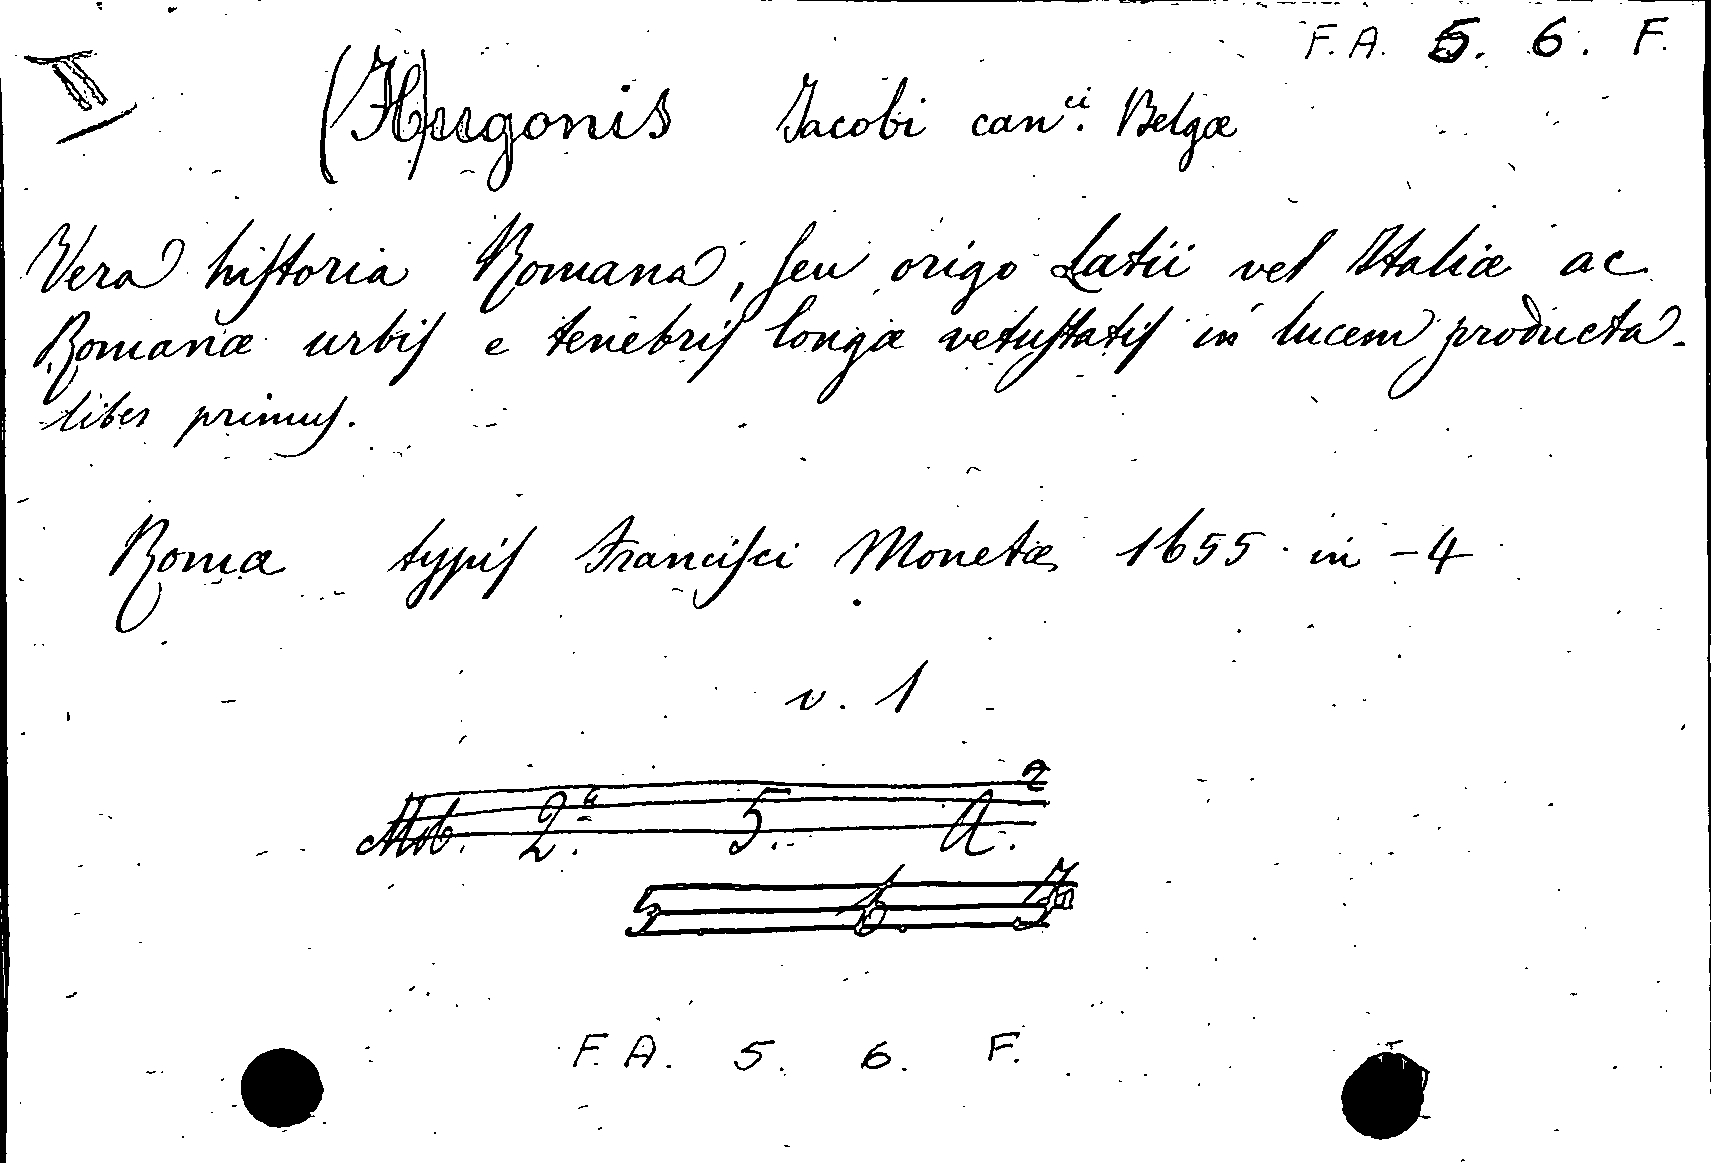 F. A. 5. 6. F.
II
(H)ugonis Jacobi canci. Belgæ
Vera hiſtoria Romana, ſeu origo Latii vel Italiæ ac
Romanæ urbiſ e tenebriſ longæ vetuſtatiſ in lucem producta.
liber primuſ.
Romæ typiſ Franciſci Monetæ 1655. in-4
v. 1
Mob. 2.a 5. A.2
5. 6.
F. A. 5. 6. F.